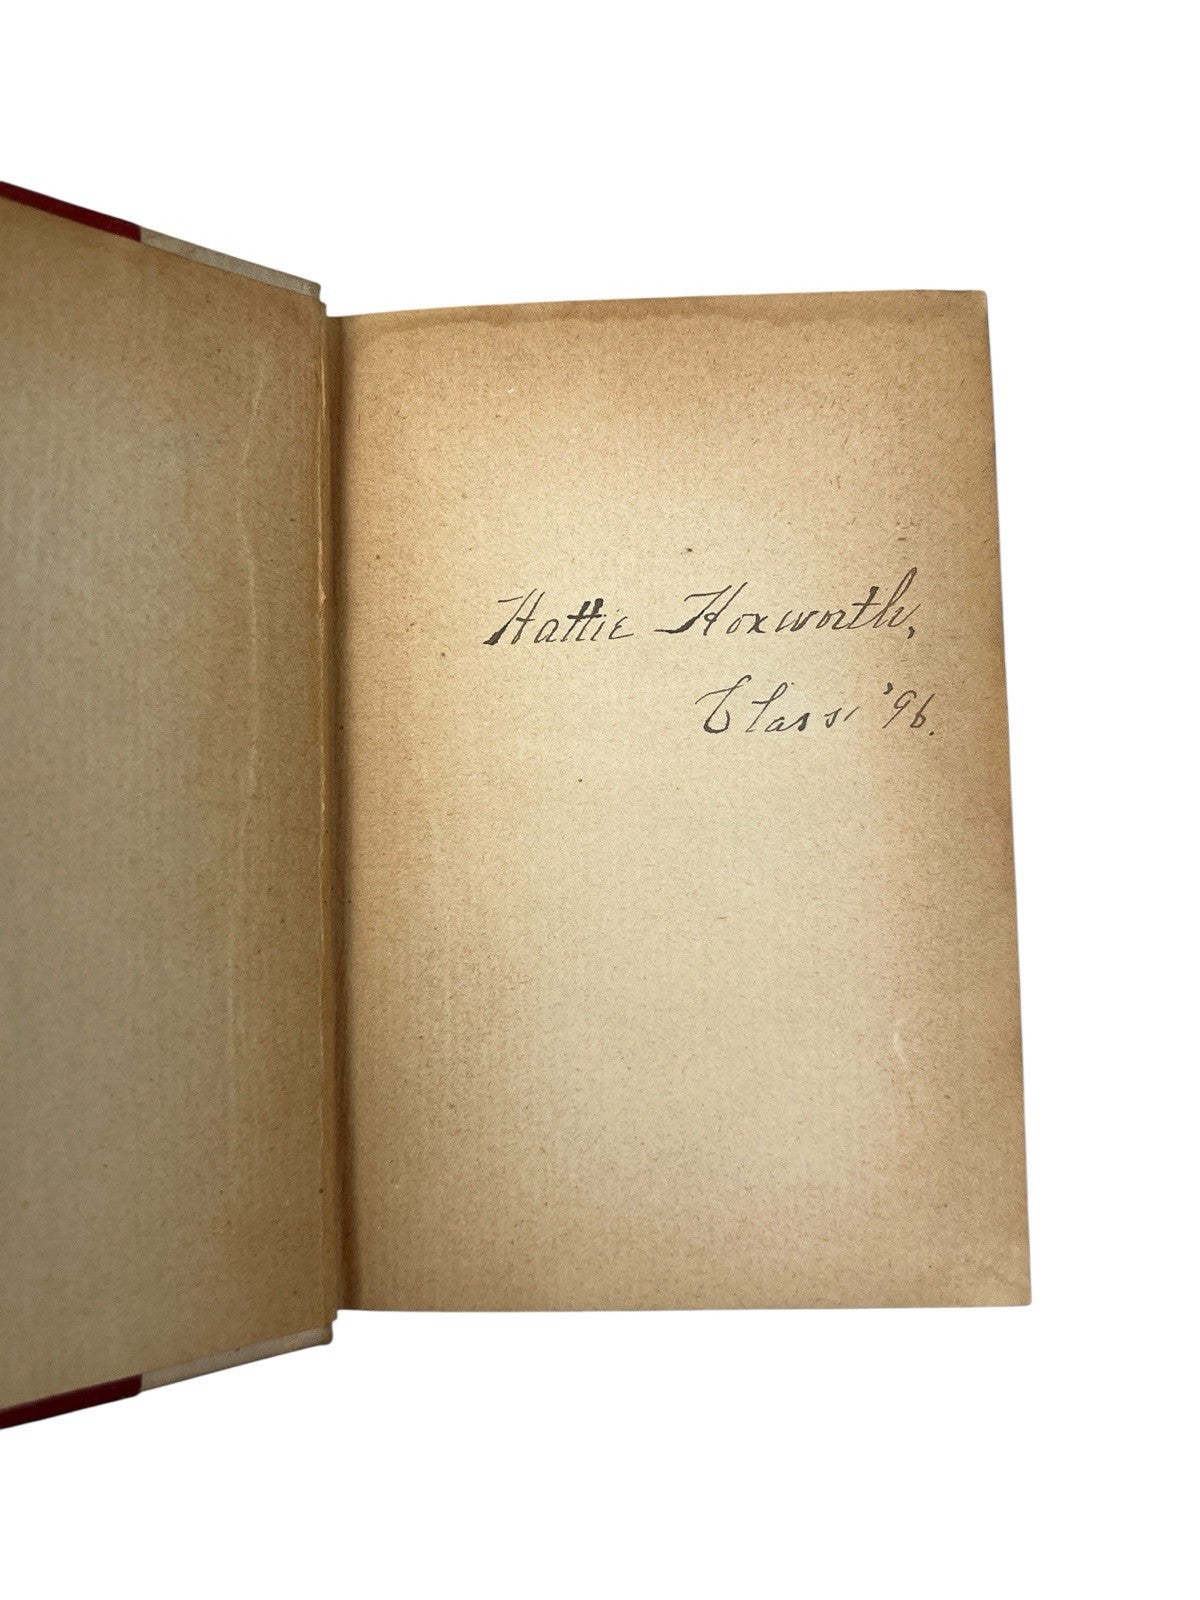 Hattie Hoxworth,
Class '96.